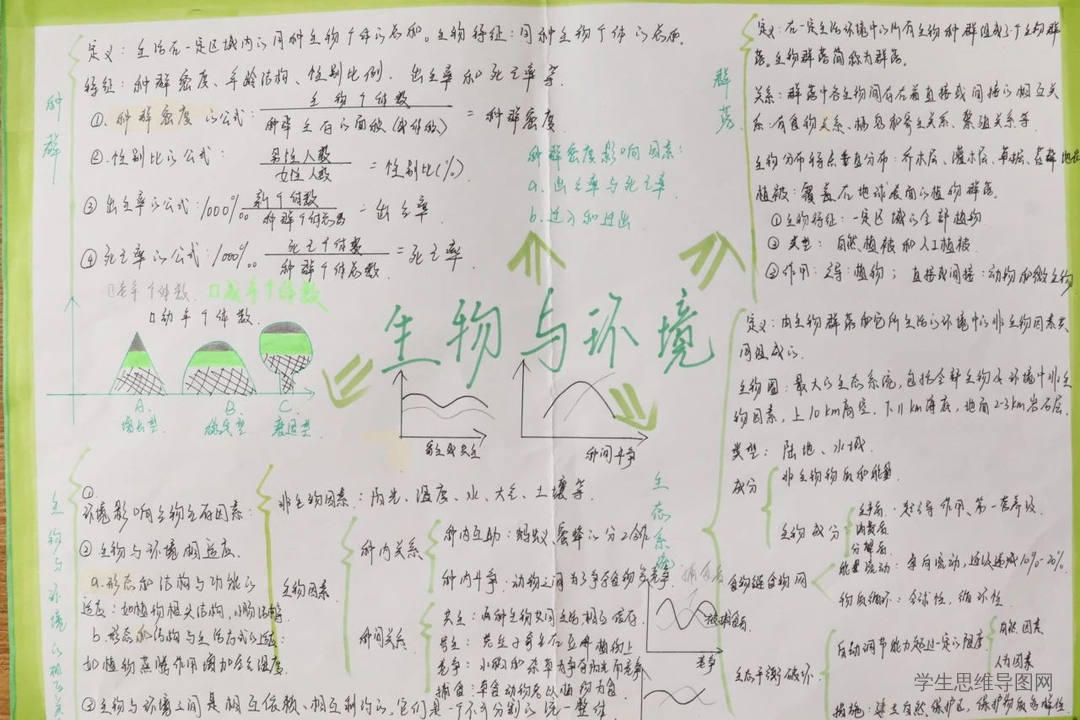 种群
定义：生活在一定区域内的同种生物个体的总和。生物特征：同种生物个体的总和。
特征：种群密度、年龄结构、性别比例、出生率和死亡率等。
①.种群密度的公式：生物个体数/种群生存的面积(或体积) = 种群密度
②.性别比的公式：男性人数/女性人数 = 性别比(%)
③出生率的公式：1000‰ 新个体数/种群个体总数 = 出生率
④死亡率的公式：1000‰ 死亡个体数/种群个体总数 = 死亡率
种群密度影响因素：
a.出生率与死亡率
b.迁入和迁出
□老年个体数. □成年个体数
□幼年个体数.
A. B. C.
增长型 稳定型 衰退型
生物与环境
寄生或共生
种间斗争
群落
定义：在一定生活环境中的所有生物种群组成了一个生物群
落。生物群落简称为群落。
关系：群落中各生物间存在着直接或间接的相互关
系.有食物关系、栖息和寄生关系、繁殖关系等
生物分布特点垂直分布：乔木层、灌木层、草本层、
植被：覆盖在地球表面的植物群落。
①生物特征：一定区域的全部植物
②类型：自然植被和人工植被
③作用：主导：植物；直接或间接：动物和微生物
生态系统
定义：由生物群落和它所生活的环境中的非生物因素共
同组成的.
生物圈：最大的生态系统，包括全部生物及环境中非生
物因素，上10km高空.下11km海底，地面2-3km岩石层.
类型：陆地、水域
成分
非生物物质和能量
生物成分
生产者.起主导作用、第一营养级.
消费者
分解者.
食物链食物网
能量流动：单向流动，逐级递减10%-20%
物质循环：全球性，循环性
生态平衡破坏
自动调节能力超过一定的限度.
自然因素
人为因素
措施：建立自然保护区，保护物质多样性.
捕食者
被捕食者
竞争
①
环境影响生物生存因素：
非生物因素：阳光、温度、水、大气、土壤等.
生物因素
种内关系
种内互助：蚂蚁、蜜蜂的分工合作
种内斗争：动物之间为了争夺食物竞争
种间关系
共生：两种生物共同生活相互依存.
竞争：小麦和杂草为争夺阳光而竞争
捕食：草食动物是以植物为食.
②生物与环境相适应.
a.形态和结构与功能的
适应：如植物根尖结构，
b.形态和结构与生活方式的适应:
如植物蒸腾作用
③生物与环境之间是相互依赖、相互制约的，它们是一个不可分割的统一整体
学生思维导图网